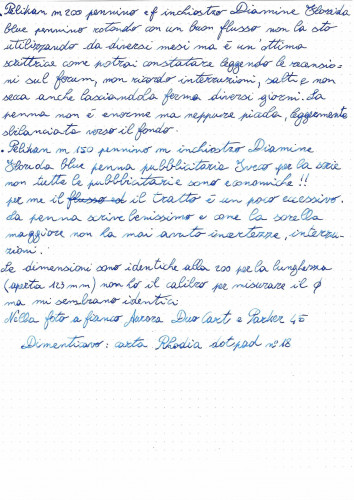 • Pelikan m200 pennino ef inchiostro Diamine Florida
blue pennino rotondo con un buon flusso non la sto
utilizzando da diversi mesi ma è un'ottima
scrittrice come potrai constatare leggendo le recensio=
ni sul forum, non ricordo interruzioni, salti e non
secca anche lasciandola ferma diversi giorni. La
penna non è enorme ma neppure piccola, leggermente
sbilanciata verso il fondo.
• Pelikan m 150 pennino m inchiostro Diamine
Florida blue penna pubblicitaria Iveco per la serie
non tutte le pubblicitarie sono economiche!!
per me il flusso ed il tratto è un poco eccessivo.
La penna scrive benissimo e come la sorella
maggiore non ha mai avuto incertezze, interru-
zioni.
Le dimensioni sono identiche alla 200 per la lunghezza
(aperta 123 mm) non ho il calibro per misurare il φ
ma mi sembrano identici
Nella foto a fianco Aurora Duo Cart e Parker 45
Dimenticavo: carta Rhodia dotpad n° 18